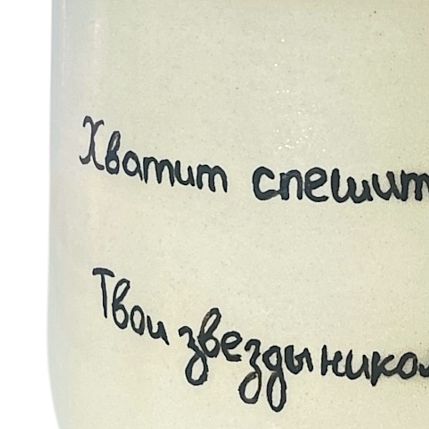 Хватит спешит
Твои звезды никол